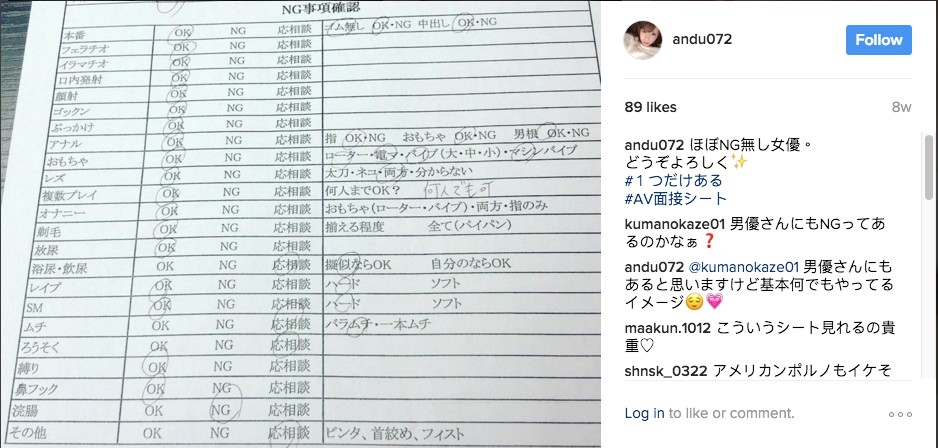 NG事項確認
本番 OK NG 応相談 ゴム無し OK・NG 中出し OK・NG
フェラチオ OK NG 応相談
イラマチオ OK NG 応相談
口内発射 OK NG 応相談
顔射 OK NG 応相談
ゴックン OK NG 応相談
ぶっかけ OK NG 応相談
アナル OK NG 応相談 指 OK・NG おもちゃ OK・NG 男根 OK・NG
おもちゃ OK NG 応相談 ローター・電マ・バイブ(大・中・小)・マシンバイブ
レズ OK NG 応相談 太刀・ネコ・両方・分からない
複数プレイ OK NG 応相談 何人までOK? 何人でも可
オナニー OK NG 応相談 おもちゃ(ローター・バイブ)・両方・指のみ
剃毛 OK NG 応相談 揃える程度 全て(パイパン)
放尿 OK NG 応相談
浴尿・飲尿 OK NG 応相談 擬似ならOK 自分のならOK
レイプ OK NG 応相談 ハード ソフト
SM OK NG 応相談 ハード ソフト
ムチ OK NG 応相談 バラムチ・一本ムチ
ろうそく OK NG 応相談
縛り OK NG 応相談
鼻フック OK NG 応相談
浣腸 OK NG 応相談
その他 OK NG 応相談 ビンタ、首絞め、フィスト
andu072
Follow
89 likes 8w
andu072 ほぼNG無し女優。
どうぞよろしく✨
#１つだけある
#AV面接シート
kumanokaze01 男優さんにもNGってあ
るのかなぁ❓
andu072 @kumanokaze01 男優さんにも
あると思いますけど基本何でもやってる
イメージ😌💗
maakun.1012 こういうシート見れるの貴
重♡
shnsk_0322 アメリカンポルノもイケそ
Log in to like or comment.